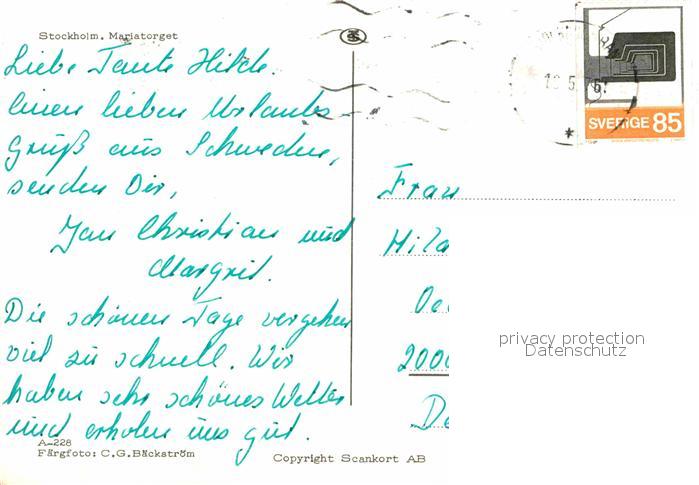 Stockholm. Mariatorget
Liebe Tante Hilde.
Einen lieben Urlaubs-
gruß aus Schweden,
senden Dir,
Jan Christian und
Margrit.
Die schönen Tage vergehen
viel zu schnell. Wir
haben sehr schönes Wetter
und erholen uns gut.
A-228
Färgfoto: C.G.Bäckström
Copyright Scankort AB
SVERIGE 85
Frau
privacy protection
Datenschutz